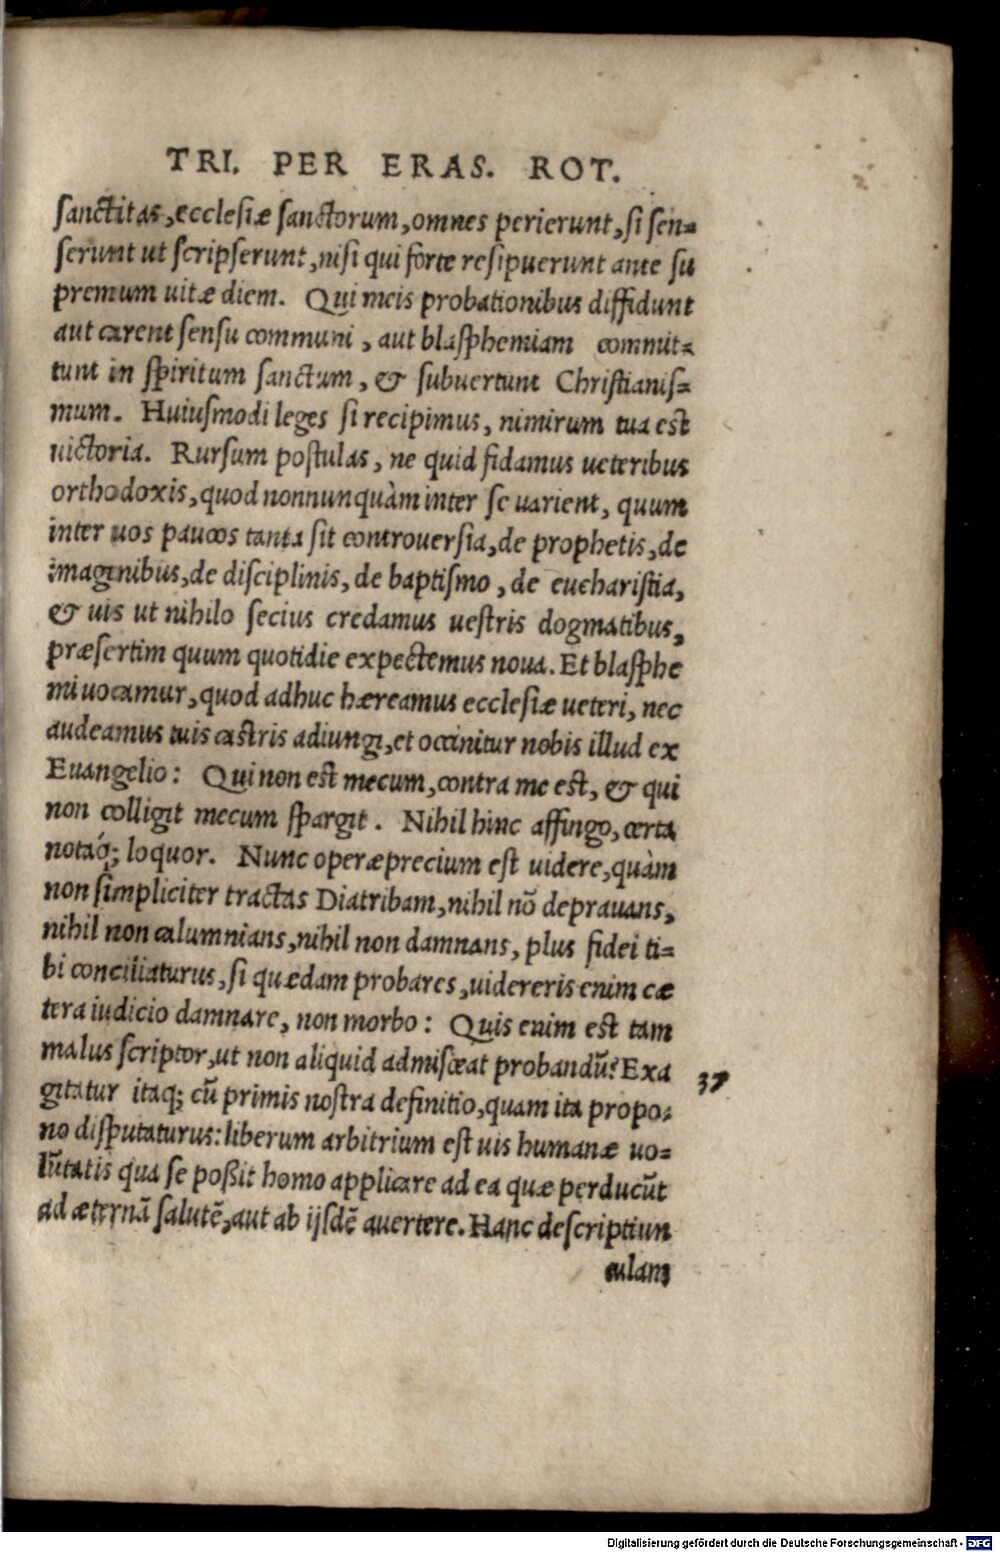 TRI. PER ERAS. ROT.
sanctitas, ecclesiæ sanctorum, omnes perierunt, si sen=
serunt ut scripserunt, nisi qui forte resipuerunt ante su
premum uitæ diem. Qui meis probationibus diffidunt
aut carent sensu communi, aut blasphemiam commit=
tunt in spiritum sanctum, & subuertunt Christianis=
mum. Huiusmodi leges si recipimus, nimirum tua est
uictoria. Rursum postulas, ne quid fidamus ueteribus
orthodoxis, quod nonnunquàm inter se uarient, quum
inter uos paucos tanta sit controuersia, de prophetis, de
imaginibus, de disciplinis, de baptismo, de eucharistia,
& uis ut nihilo secius credamus uestris dogmatibus,
præsertim quum quotidie expectemus noua. Et blasphe
mi uocamur, quod adhuc hæreamus ecclesiæ ueteri, nec
audeamus tuis castris adiungi, et occinitur nobis illud ex
Euangelio: Qui non est mecum, contra me est, & qui
non colligit mecum spargit. Nihil hinc affingo, certa
notaq́; loquor. Nunc operæprecium est uidere, quàm
non simpliciter tractas Diatribam, nihil nõ deprauans,
nihil non calumnians, nihil non damnans, plus fidei ti=
bi conciliaturus, si quædam probares, uidereris enim cæ
tera iudicio damnare, non morbo: Quis enim est tam
malus scriptor, ut non aliquid admisceat probandũ? Exa
gitatur itaq; cũ primis nostra definitio, quam ita propo=
no disputaturus: liberum arbitrium est uis humanæ uo=
lũtatis qua se poßit homo applicare ad ea quæ perducũt
ad æternã salutẽ, aut ab ijsdẽ auertere. Hanc descriptiun
culam
37
Digitalisierung gefördert durch die Deutsche Forschungsgemeinschaft - DFG